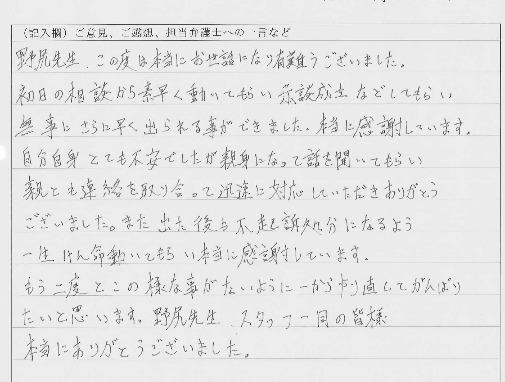 （記入欄）ご意見、ご感想、担当弁護士への一言など
野尻先生、この度は本当にお世話になり有難うございました。
初日の相談から素早く動いてもらい示談成立などしてもらい
無事にさらに早く出られる事ができました。本当に感謝しています。
自分自身とても不安でしたが親身になって話を聞いてもらい
親とも連絡を取り合って迅速に対応していただきありがとう
ございました。また出た後も不起訴処分になるよう
一生けん命動いてもらい本当に感謝しています。
もう二度とこの様な事がないように一からやり直してがんばり
たいと思います。野尻先生、スタッフ一同の皆様
本当にありがとうございました。